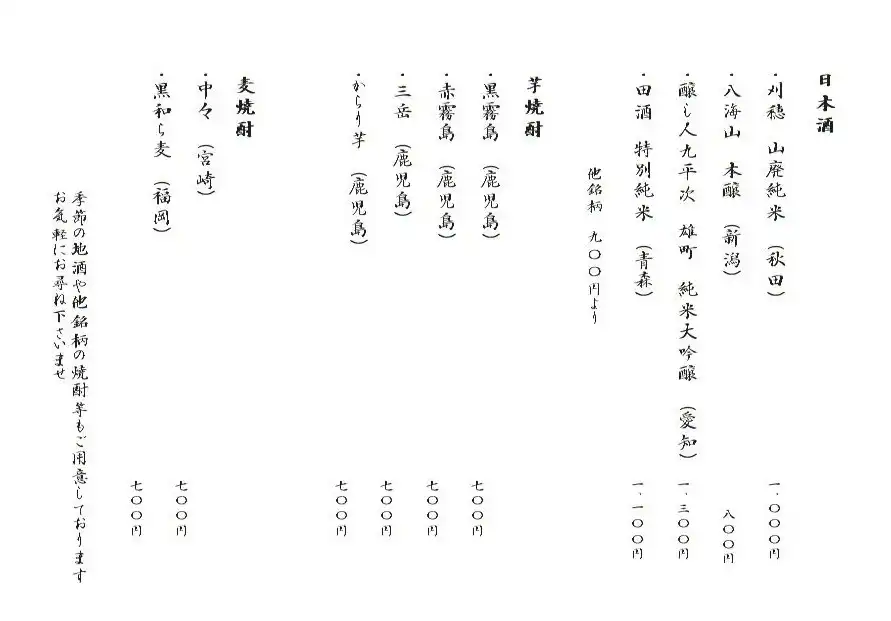 日本酒
・刈穂 山廃純米 (秋田) 一、〇〇〇円
・八海山 本醸 (新潟) 八〇〇円
・醸し人九平次 雄町 純米大吟醸 (愛知) 一、三〇〇円
・田酒 特別純米 (青森) 一、一〇〇円
他銘柄 九〇〇円より
芋焼酎
・黒霧島 (鹿児島) 七〇〇円
・赤霧島 (鹿児島) 七〇〇円
・三岳 (鹿児島) 七〇〇円
・からり芋 (鹿児島) 七〇〇円
麦焼酎
・中々 (宮崎) 七〇〇円
・黒和ら麦 (福岡) 七〇〇円
季節の地酒や他銘柄の焼酎等もご用意しております
お気軽にお尋ね下さいませ